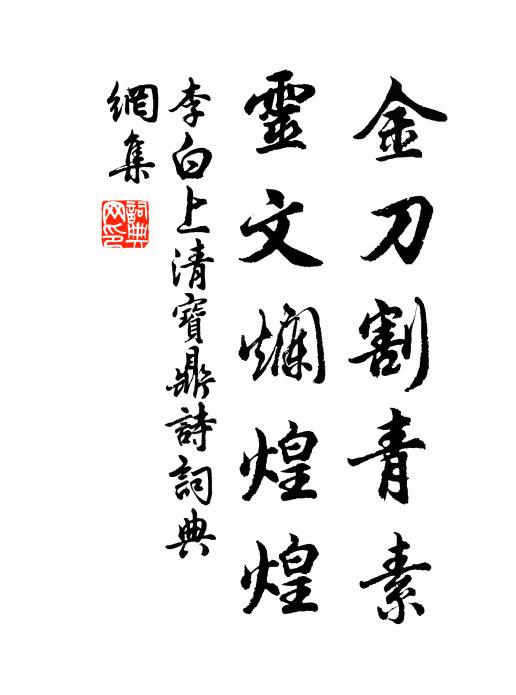 金刀割青素
靈文爛煌煌
李白上清寶鼎詩詞典
網集
詞典
网印